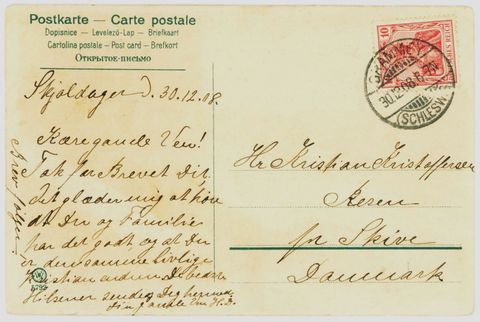 Postkarte — Carte postale
Dopisnice — Levelező-Lap — Briefkaart
Cartolina postale — Post card — Brefkort
Открытое-письмо
10
30.12.08.
(SCHLESW.)
Skjoldager d. 30.12.08.
Kæregamle Ven!
Tak for Brevet Dit
det glæder mig at høre
at Du og Familie
har det godt og at Du
er den samme livlige
Kristian endnu De bedste
Hilsener sendes Dig hermed
Din gamle
Brev følger
5792
Hr Kristian Kristoffersen
Resen
pr Skive
Danmark